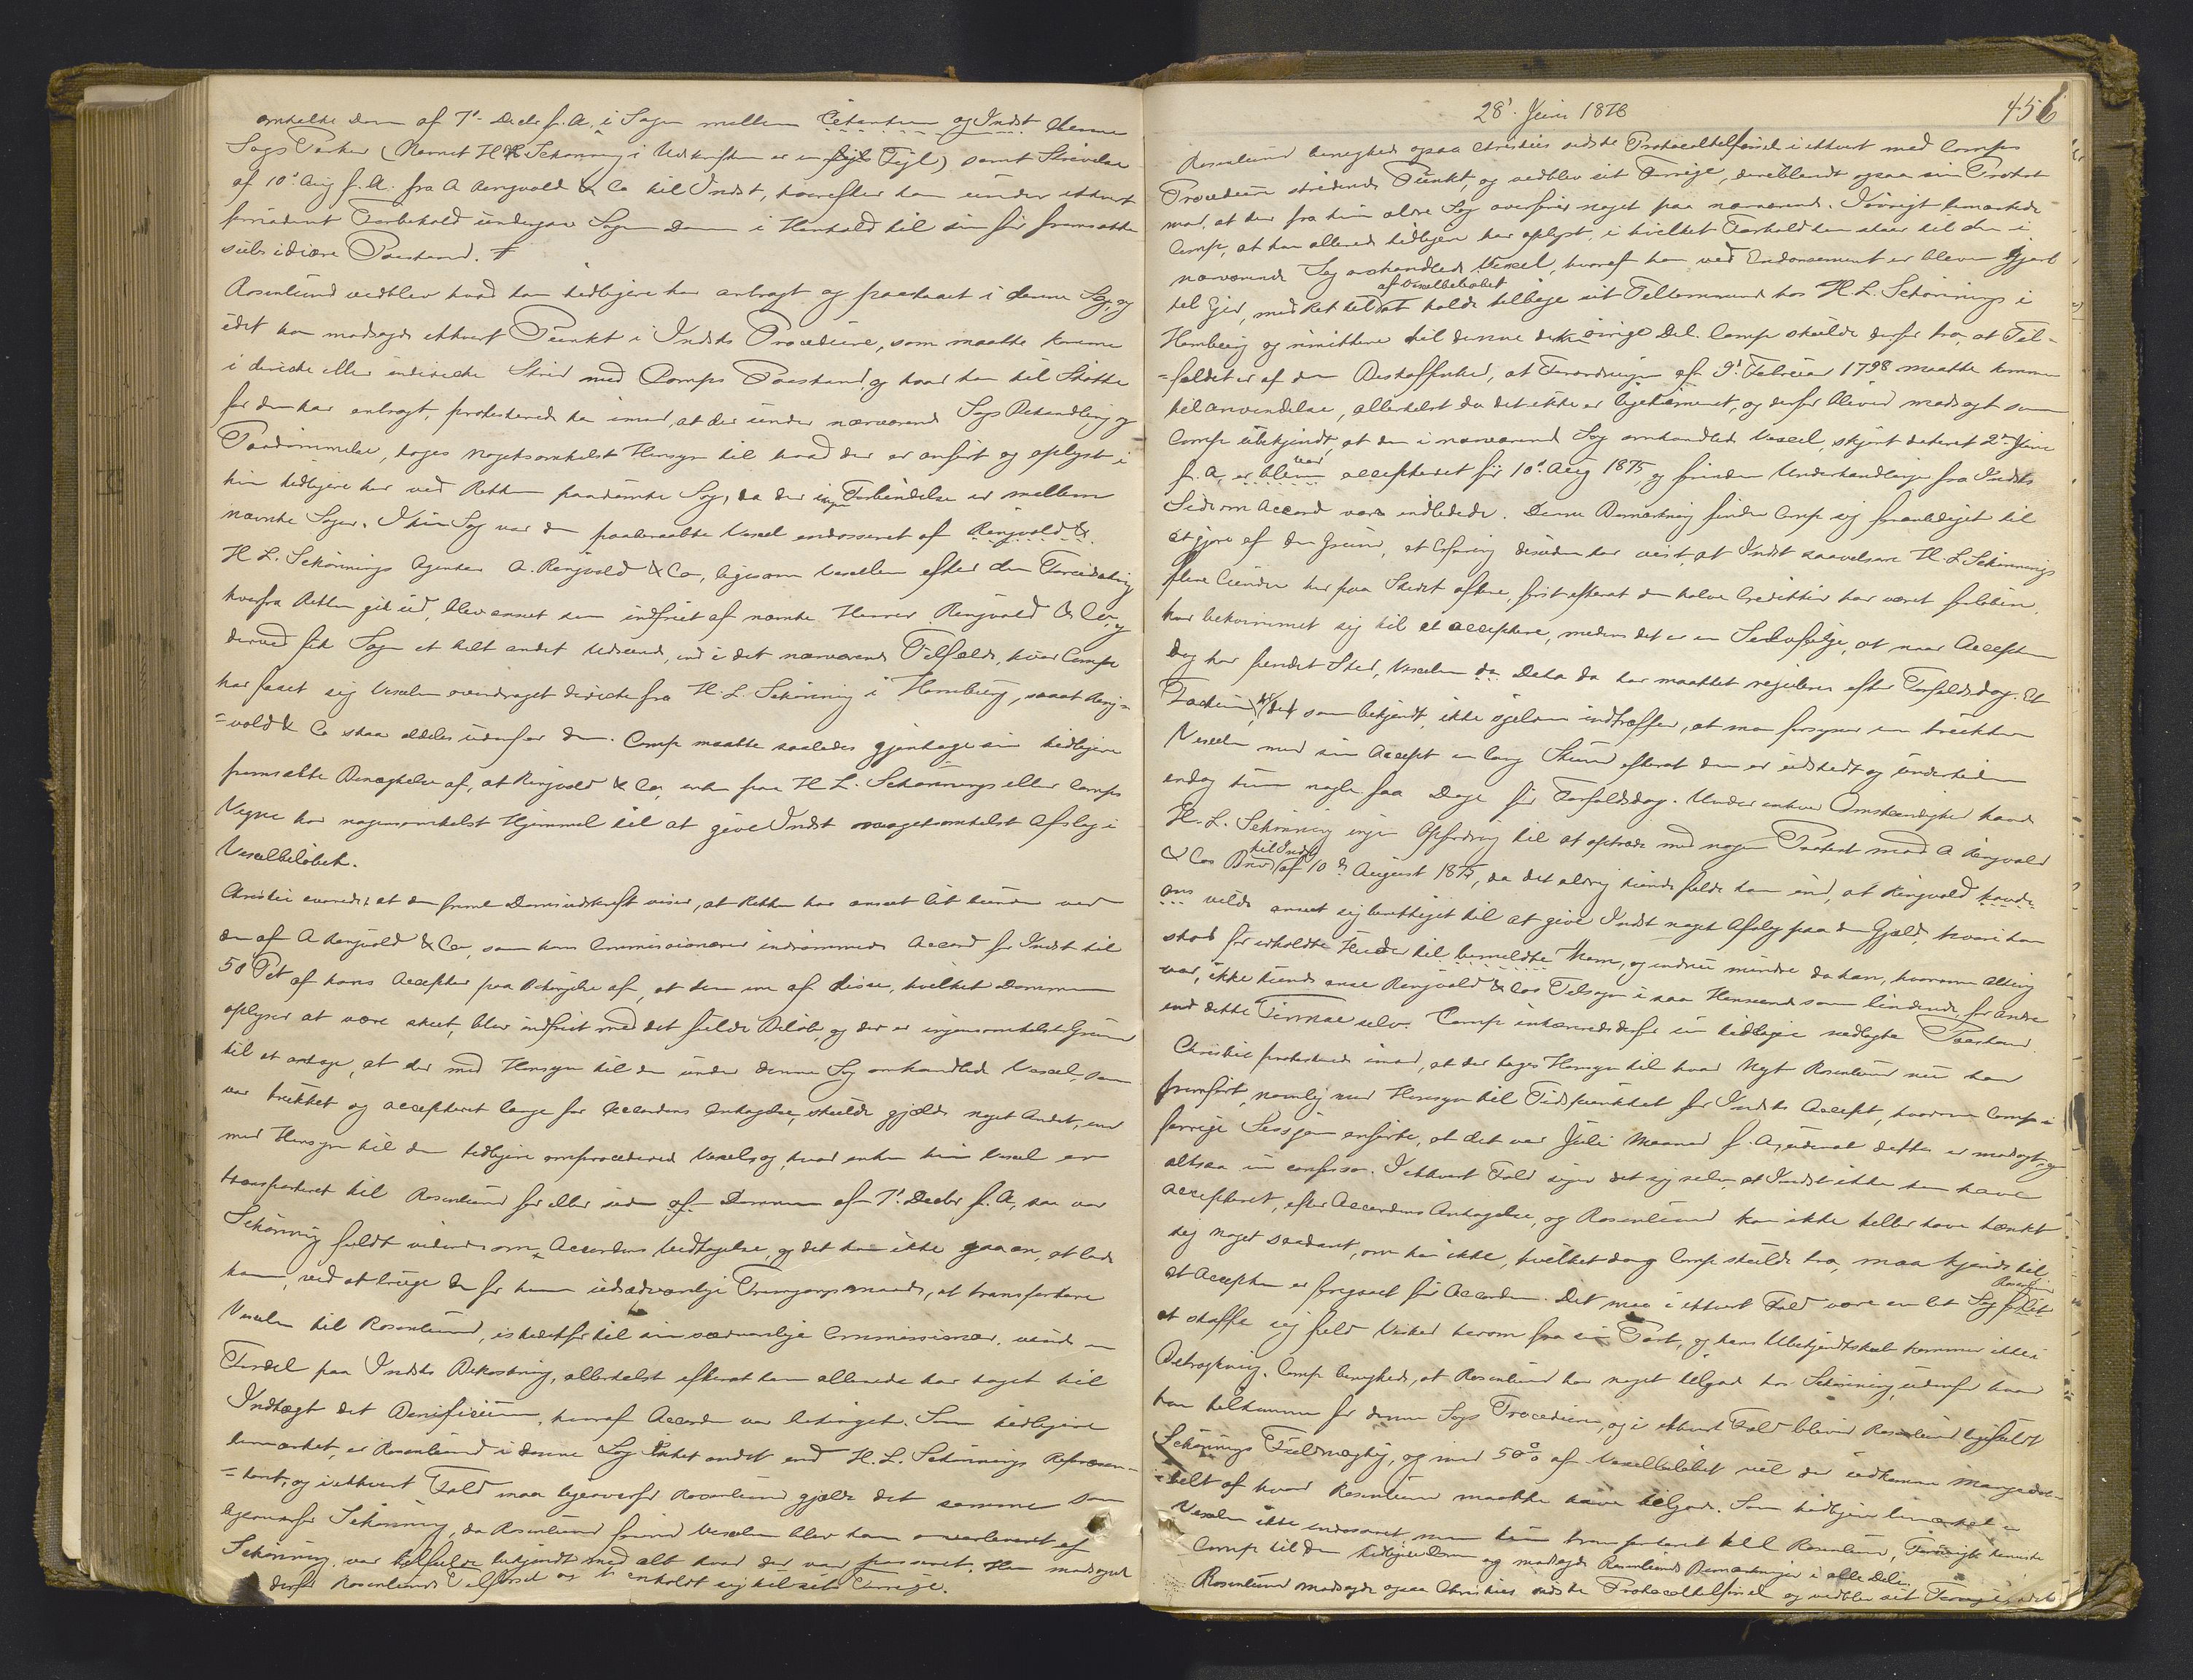 omhelte Dom af 7de Decbr f. A. i Sagen mellem Citanten og Indst denne
Sags Parter (Navnet H H Schønning i Udskriften er en Fejl) samt Skrivelse
af 10de Aug f. A. fra A Ringvold & Co til Indst, hvorefter han under ethvert
fornødent Forbehold undergav Sagen Dom i Henhold til sin før fremsatte
subsidiære Paastand.
Rosenlund vedblev hvad han tidligere har anbragt og paastaaet i denne Sag, og
idet han modsagde ethvert Punkt i Indsts Procedure, som maatte komme
i directe eller indirecte Strid med Comps Paastand og hvad han til Støtte
for den har anbragt, protesterede han imod, at der under nærværende Sags Behandling og
Paadømmelse, toges nogetsomhelst Hensyn til hvad der er anført og oplyst i
hin tidligere her ved Retten paadømte Sag, da der ingen Forbindelse er mellem
nævnte Sager. I hin Sag var den paaberaabte Vexel endosseret af Ringvold &
H L. Schønnings Agenter A. Ringvold & Co, ligesom Vexelen efter den Forudsætning
hvorfra Retten gik ud, blev anseet som indfriet af nævnte Herrer Ringvold & Co, og
derved fik Sagen et helt andet Udseende, end i det nærværende Tilfælde, hvor Comp
har faaet sig Vexelen overdraget directe fra H. L. Schønning i Hamburg, saaat Ring-
=vold & Co staa aldeles udenfor den. Comp maatte saaledes gjentage sin tidligere
fremsatte Benægtelse af, at Ringvold & Co, enten paa H L. Schønnings eller Comps
Vegne har nogensomhelst Hjemmel til at give Indst nogetsomhelst Afslag i
Vexelbeløbet.
Christie svarede, at den fremlagte Domsudskrift viser, at Retten har anseet Cit bunden ved
den af A Ringvold & Co, som hans Commissionærer indrømmede Accord for Indst til
50 Pct af hans Accepter paa Betingelse af, at den ene af disse, hvilket Dommen
oplyser at være skeet, blev indfriet med det fulde Beløb, og der er ingensomhelst Grund
til at antage, at der med Hensyn til den under denne Sag omhandlede Vexel, som
var trukket og accepteret længe før Accordens Antagelse, skulde gjælde noget Andet, end
med Hensyn til den tidligere omprocederede Vexel, og hvad enten hin Vexel er
transporteret til Rosenlund før eller siden Dommen af 7de Decbr f. A., saa var
Schønning fuldt vidende om Accordens Vedtagelse, og det kan ikke gaa an, at lade
ham, ved at bruge den for ham usædvanlige Fremgangsmaade, at transportere
Vexelen til Rosenlund, istedetfor til sin sædvanlige Commissionær, vinde en
Fordel paa Indsts Bekostning, allerhelst efterat han allerede har taget til
Indtægt det Beneficium, hvoraf Accorden var betinget. Som tidligere
bemærket, er Rosenlund i denne Sag Intet andet end H. L. Schønnings Repræsen-
=tant, og i ethvert Fald maa ligeoverfor Rosenlund gjælde det samme som
ligeoverfor Schønning, da Rosenlund forinden Vexelen blev ham overleveret af
Schønning, var tilfulde bekjendt med alt hvad der var passeret. Han modsagde
derfor Rosenlunds Tilførsel og henholdt sig til sit Øvrige.
28de Juni 1876
456
Rosenlund benegtede ogsaa Christies sidste Protocoltilførsel i ethvert med Comps
Procedure stridende Punkt, og vedblev sit Forrige, deriblandt ogsaa sin Protest
mod, at der fra hin ældre Sag overføres noget paa nærværende. Iøvrigt bemærkede
Comp, at han allerede tidligere har oplyst, i hvilket Forhold han staar til den i
nærværende Sag omhandlede Vexel, hvoraf han ved Endossement er bleven gjort
til Eier, med Ret til af Vexelbeløbet at holde tilbage sit Tilkommende hos H. L. Schønnings i
Hamburg og remittere til denne den øvrige Del. Comp skulde derfor tro, at Til-
=fældet er af den Beskaffenhed, at Forordningen af 9de Februar 1798 maatte komme
til anvendelse, allerhelst da det ikke er bekjendt, og derfor bliver modsagt som
Comp ubekjendt, at den i nærværende Sag omhandlede Vexel, skjønt dateret 2den Juni
f. A. var accepteret før 10de Aug 1875, og forinden Underhandlinger fra Indsts
Side om Accord vare indledede. Denne Bemærkning finder Comp sig foranlediget til
at gjøre af den Grund, at Erfaring desuden har vist, at Indst saavelsom H. L. Schønnings
flere Kunder her paa Stedet oftere, først efterat den halve Credittid har været forløben,
har bekvemmet sig til at acceptere, medens det er en Selvfølge, at naar Accepten
dog har fundet Sted, Vexelens Data da har maattet reguleres efter Forfaldsdag. Et
Factum, der som bekjendt, ikke sjelden indtræffer, at man forsyner en trukken
Vexelen med sin Accept en lang Stund efterat den er udstedt og undertiden
endog kun nogle faa Dage før Forfaldsdag. Under enhver Omstændighed havde
H. L. Schønning ingen Opfordring til at optræde med nogen Protest mod A Ringvold
& Cos Brev til Indst af 10de August 1875, da det aldrig kunde falde ham ind, at Ringvold
vilde anseet sig berettiget til at give Indst noget Afslag paa den Gjæld, hvori han
stod for erholdte Huder til bemeldte Mand, og endnu mindre da han, hvorom Alting
var, ikke kunde anse Ringvold & Cos Tilsagn i saa Henseende som bindende for andre
end dette Firma selv. Comp inhærerede derfor sin tidligere nedlagte Paastand.
Christie protesterede imod, at der tages Hensyn til hvad Nyt Rosenlund nu har
fremført, navnlig med Hensyn til Tidspunktet for Indsts Accept, hvorom Comp i
forrige Session anførte, at det var Juli Maaned f. A, uden at dette er modsagt, og
altsaa in confesso. I ethvert Fald siger det sig selv, at Indst ikke kan have
accepteret, efter Accordens Antagelse, og Rosenlund kan ikke heller have tænkt
sig noget saadant, om han ikke, hvilket dog Comp skulde tro, maa kjende til,
at Accepten er foregaaet før Accorden. Det maa i ethvert Fald være en let Sag for Rosenlund
at skaffe sig fuld Vished herom fra sin Part, og hans Ubekjendtskab kommer ikke i
Betragtning. Comp benegtede, at Rosenlund har noget tilgode hos Schønning, udenfor hvad
han tilkommer for denne Sags Procedure, og i ethvert Fald bliver Rosenlund ligefuldt
Schønnings Fuldmægtig, og med 50% af Vexelbeløbet vil der udkomme mangedob-
=belt af hvad Rosenlund maatte have tilgode. Som tidligere bemærket er
Vexelen ikke endosseret men kun transporteret til Rosenlund, Forøvrigt henviste
Comp til den tidligere Dom og modsagde Rosenlunds Bemærkninger i alle Dele.
Rosenlund modsagde ogsaa Christies sidste Protocoltilførsel og vedblev sit Forrige, idet